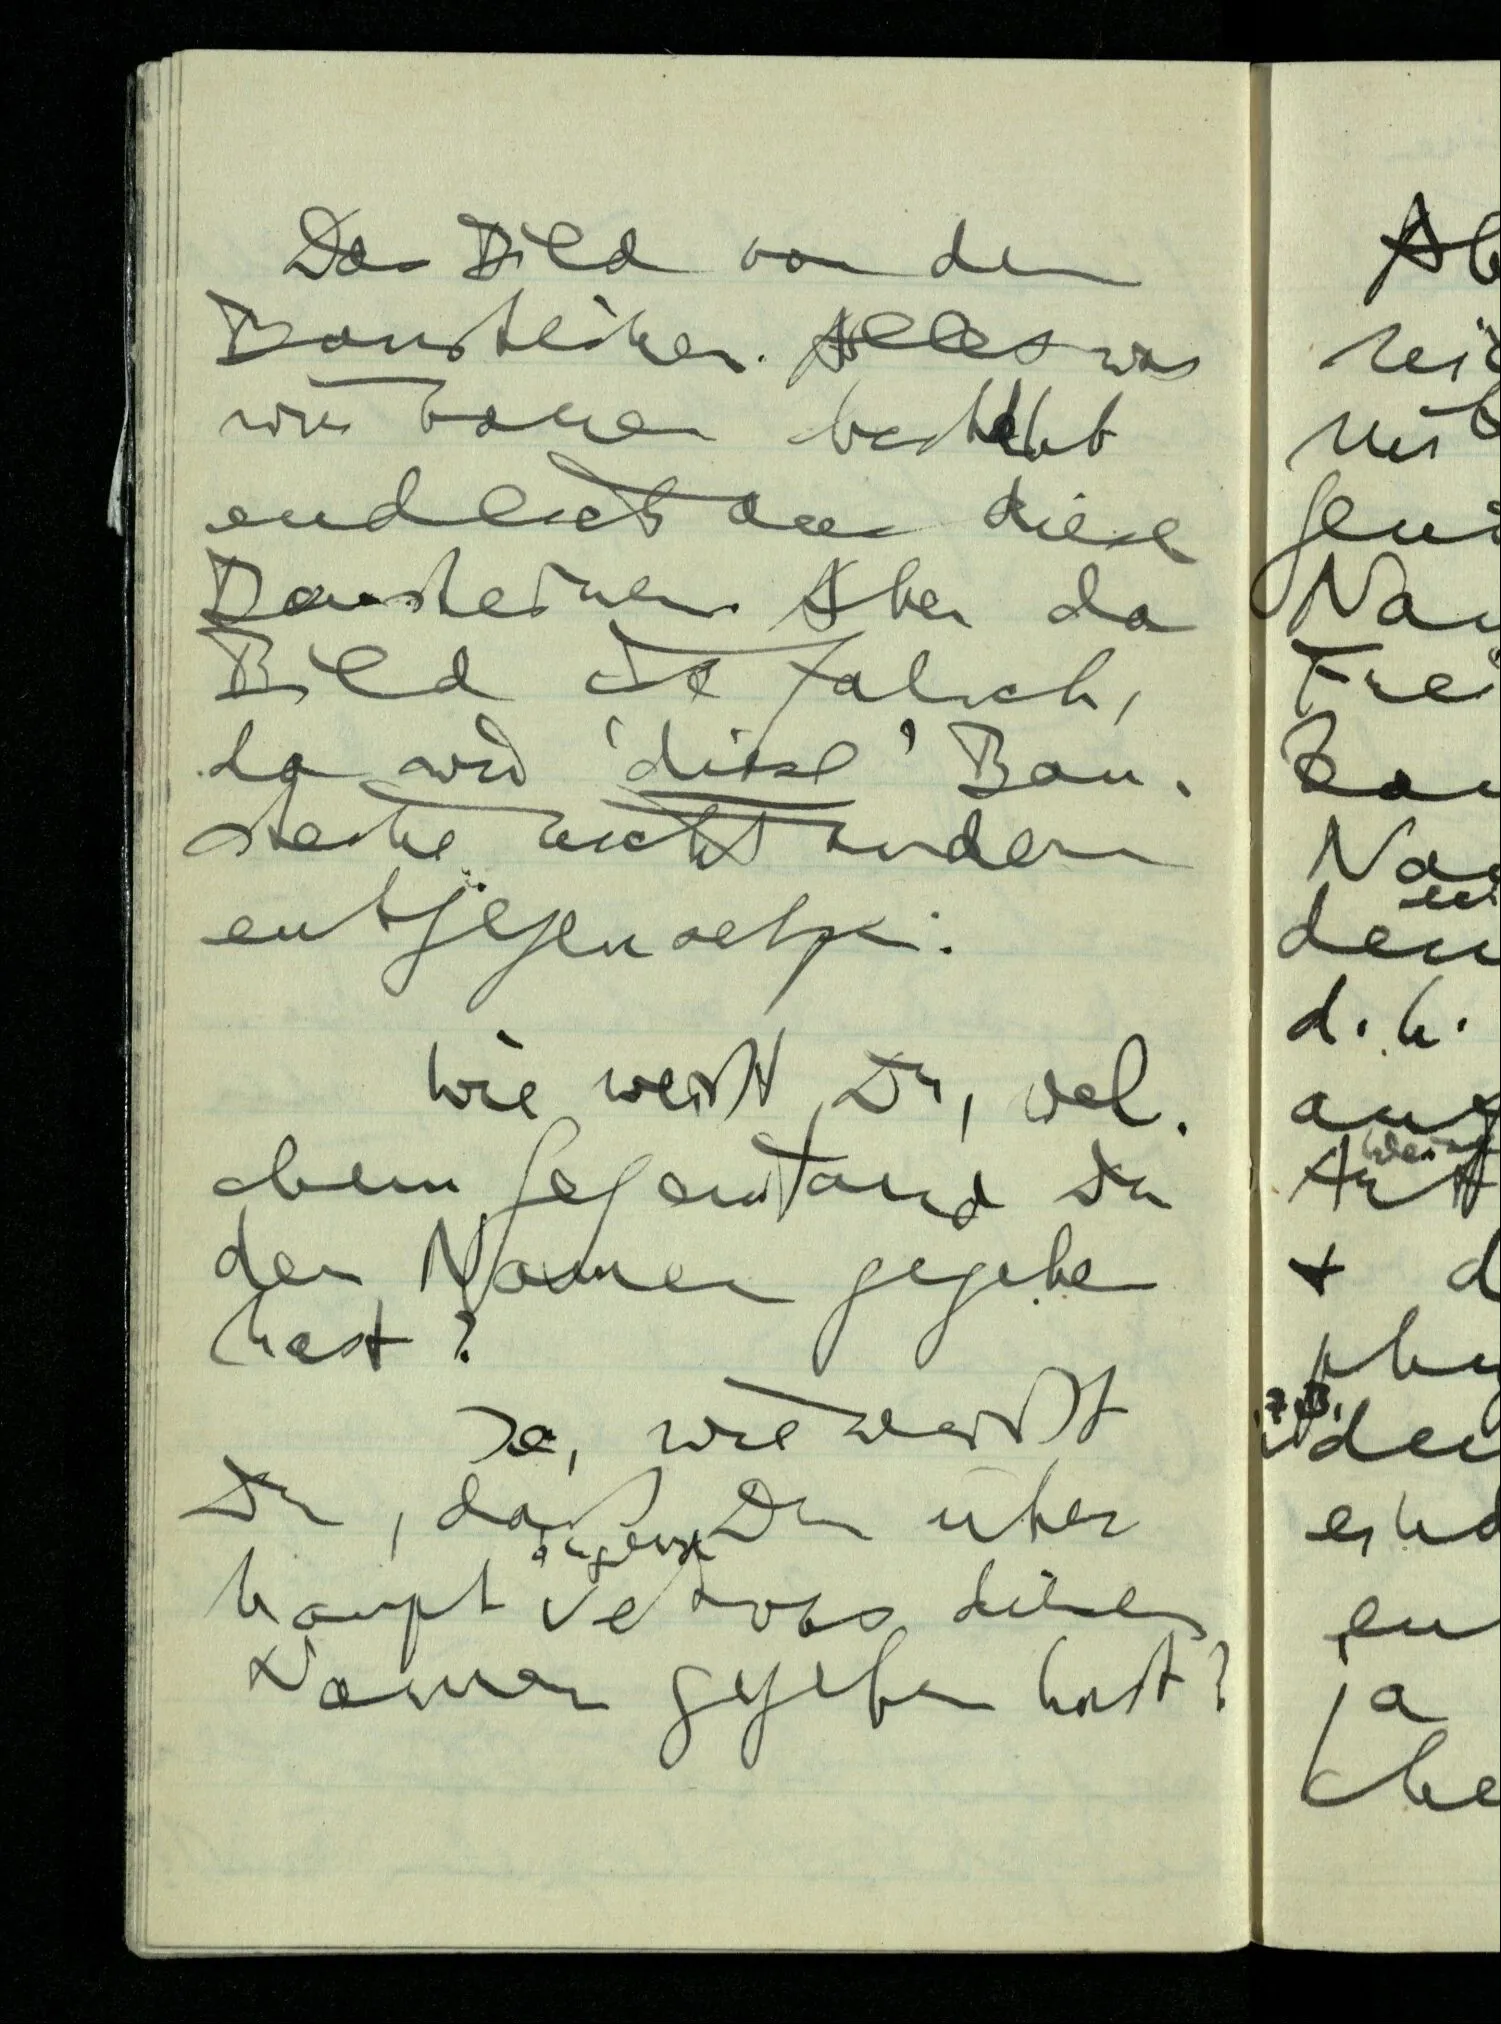 Das Bild von den
Bausteinen. Alles was
wir bauen besteht
endlich aus diesen
Bausteinen. Aber das
Bild ist falsch,
da wir 'diese' Bau-
steine nicht andern
entgegensetzen.
Wie weißt Du, wel-
chem Gegenstand Du
den Namen gegeben
hast?
Ja, wie weißt
Du, daß Du über
haupt irgend
etwas diesen
Namen gegeben hast?
Ab
nei
mit
Nam
den
d.h.
+ d
z.B.
den
ja